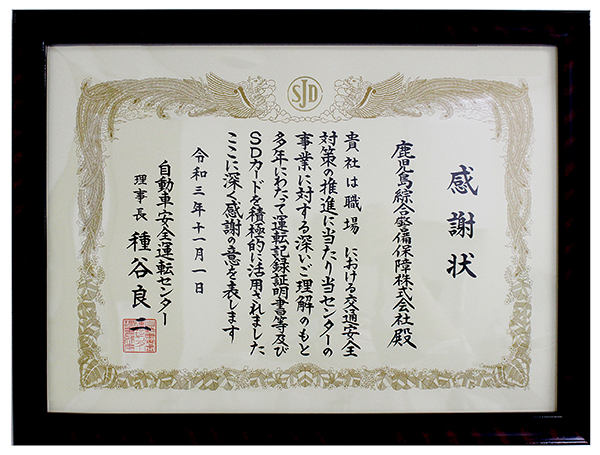 SJD
感謝状
鹿児島綜合警備保障株式会社殿
貴社は職場 における交通安全
対策の推進に当たり当センターの
事業に対する深いご理解のもと
多年にわたって運転記録証明書等及び
SDカードを積極的に活用されました
ここに深く感謝の意を表します
令和三年十一月一日
自動車安全運転センター
理事長 種谷良二